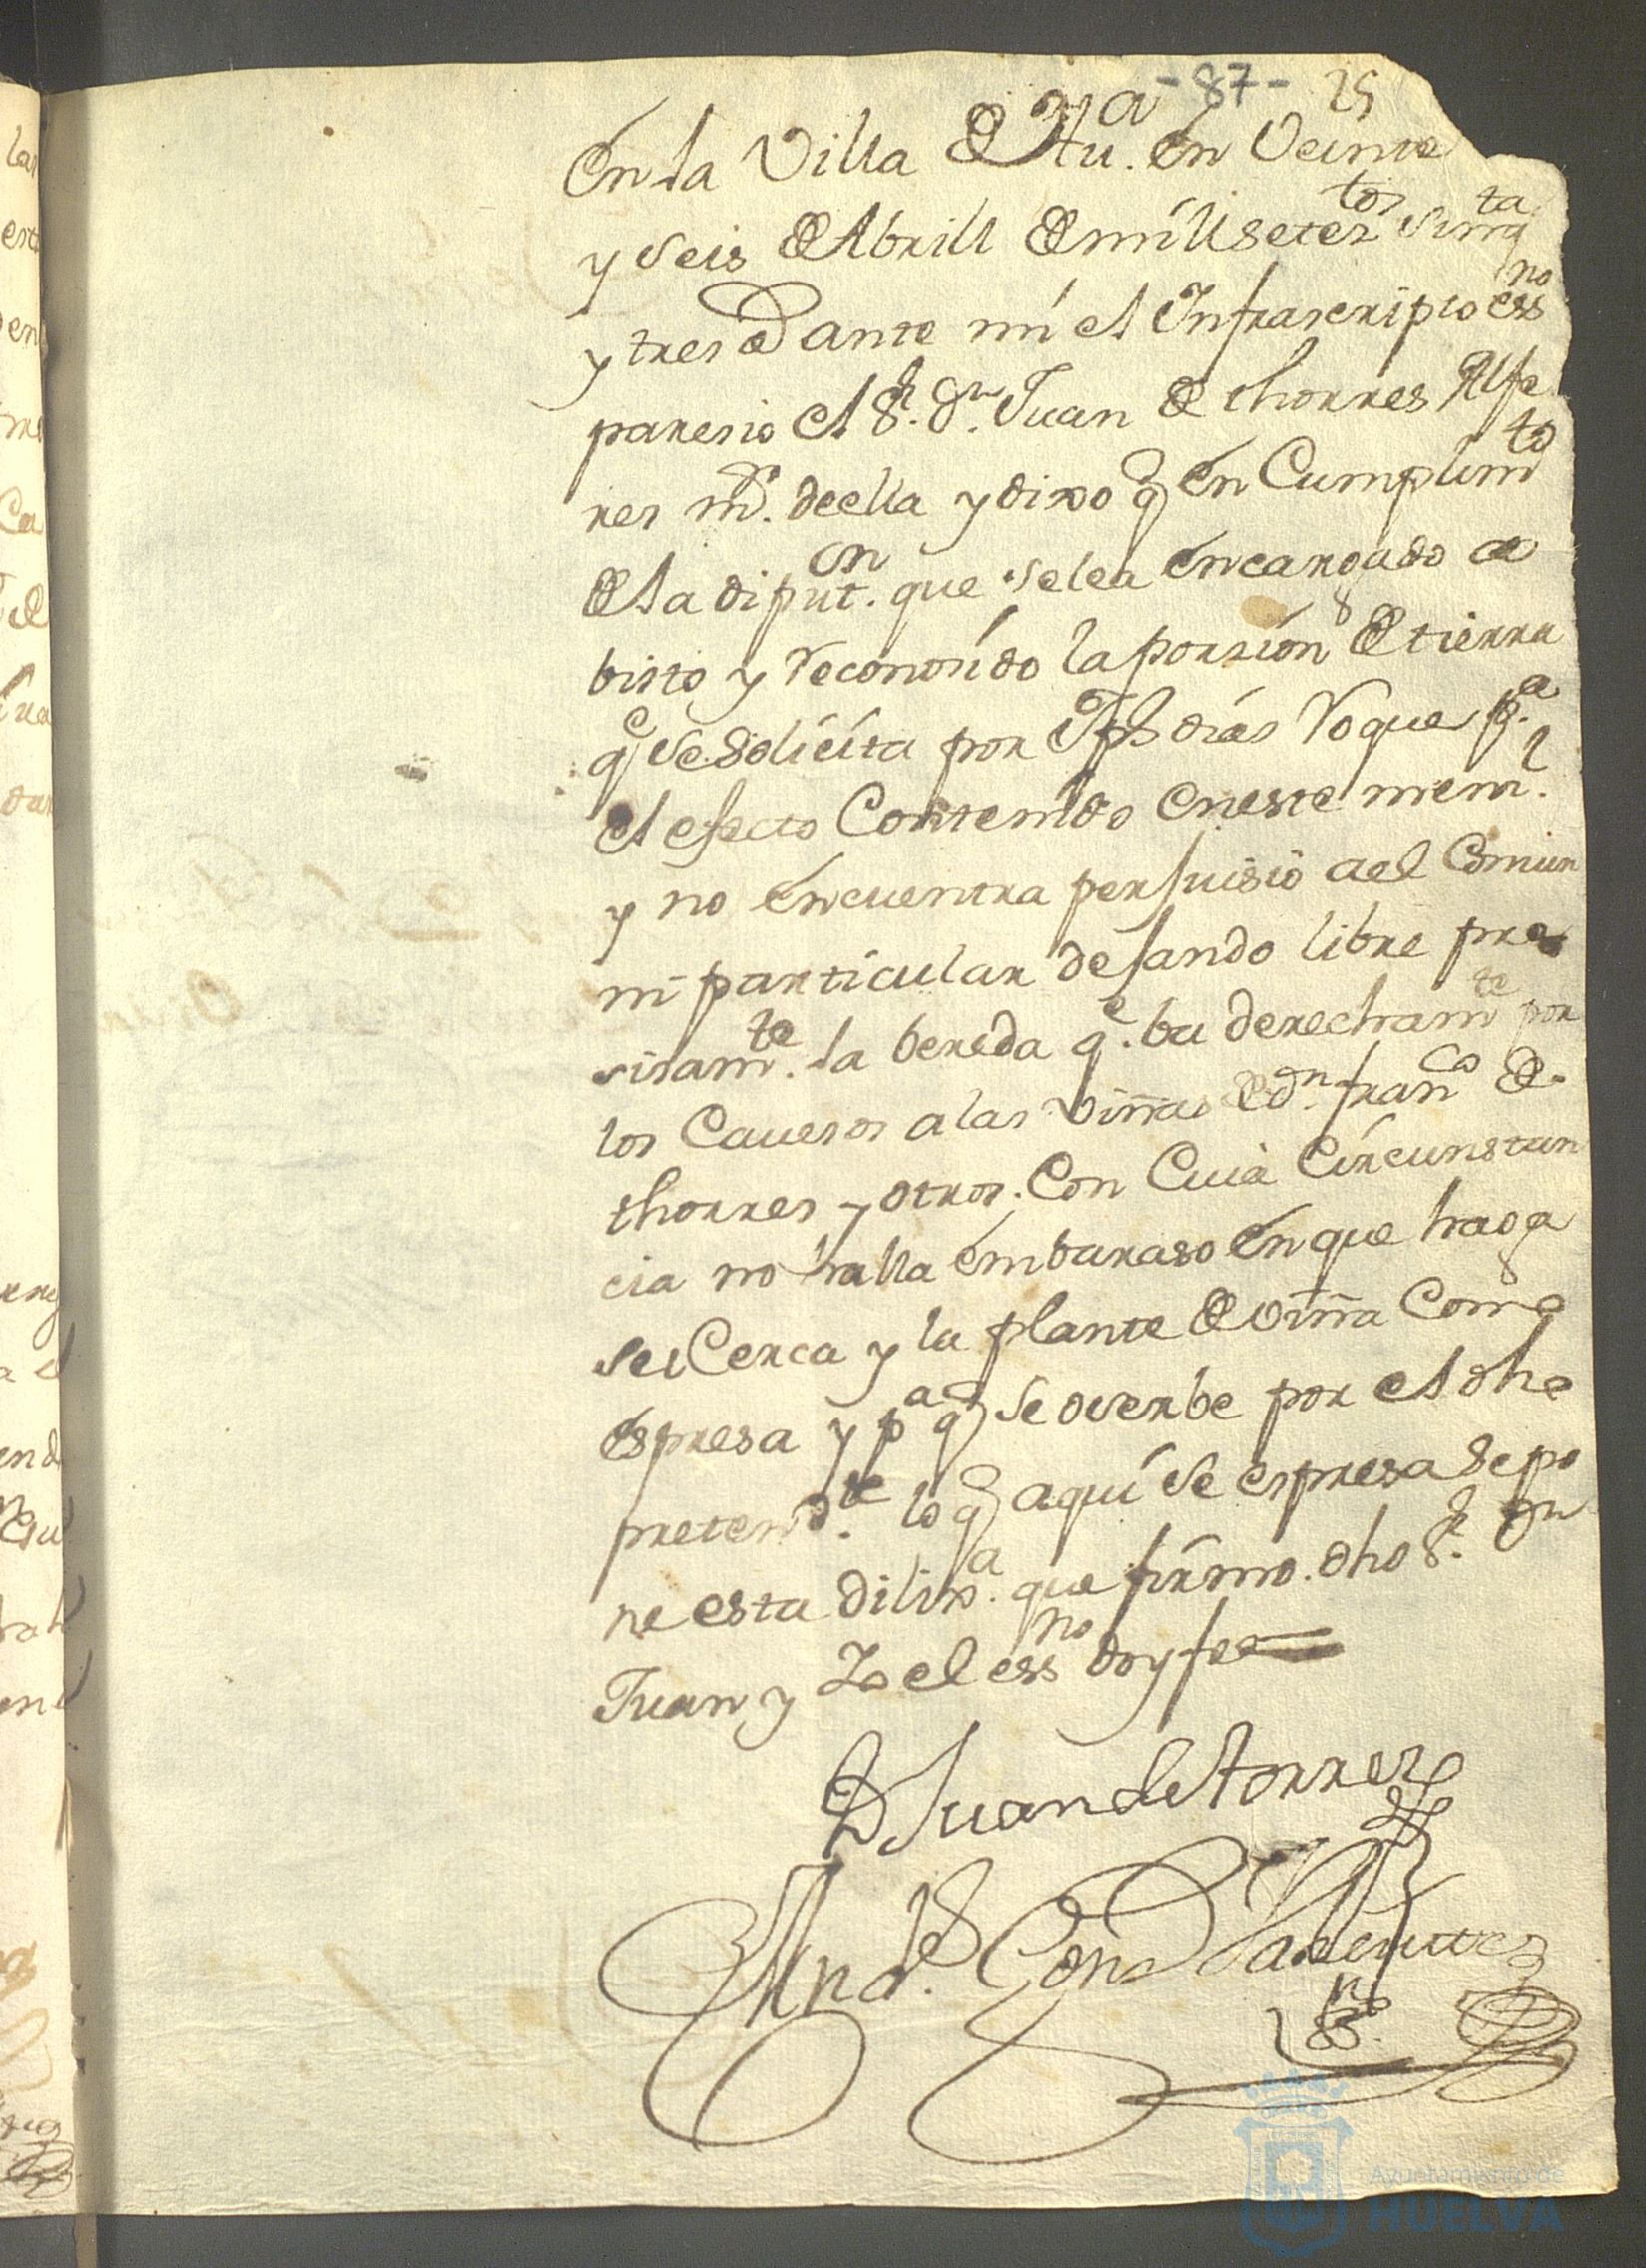 -87- 25
En la Villa de Hua. en Veinte
y seis de Abrill de mill setezтos sinqta
y tres ante mi el Infrascripto essno
paresio el Sr. Dn Juan de thorres Alfe
res mr. de ella y dixo q en Cumplimto
de la diputon. que se lea encargado a
bisto y reconosido la porsion de tierra
qe se solicita por Jph dias Roque pa.
el efecto Contenido en este meml.
y no encuentra perjuisio a el Comun
ni particular dejando libre pre
sisamte. la bereda qe. ba derechamte por
los Cavesos a las Viñas de dn. franco de
thorres y otros. Con Cuia Circunstan
cia no halla embaraso en que haga
se Cerca y la plante de viña Como
espresa y pa q se oserbe por el dho
pretendte. lo q aqui se espresa se po
ne esta dilixa. que firmo. dho Sr. Dn
Juan y Yo el essno doy fee
D Juan de torres
Andrs. Gonz Valiente